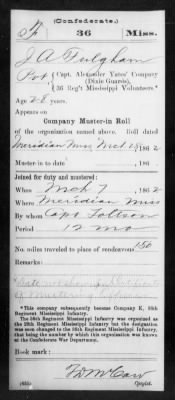 (Confederate.)
36 Miss.
J A Fulgham
Pvt { Capt. Alexander Yates' Company
(Dixie Guards),
36 Reg't Mississippi Volunteers.*
Age 28 years.
Appears on
Company Muster-in Roll
of the organization named above. Roll dated
Meridian Miss Mch 18, 1862
Muster-in to date , 186 .
Joined for duty and mustered:
When Mch 7 , 1862
Where Meridian Miss
By whom Capt
Period 12 mo
No. miles traveled to place of rendezvous 150
Remarks:
*This company subsequently became Company K, 36th
Regiment Mississippi Infantry.
The 36th Regiment Mississippi Infantry was organized as
the Regiment Mississippi Infantry, but the designation
was soon changed to the 36th Regiment Mississippi Infantry,
that being the number by which this organization was known
at the Confederate War Department.
Book mark:
McCaw
Copyist.